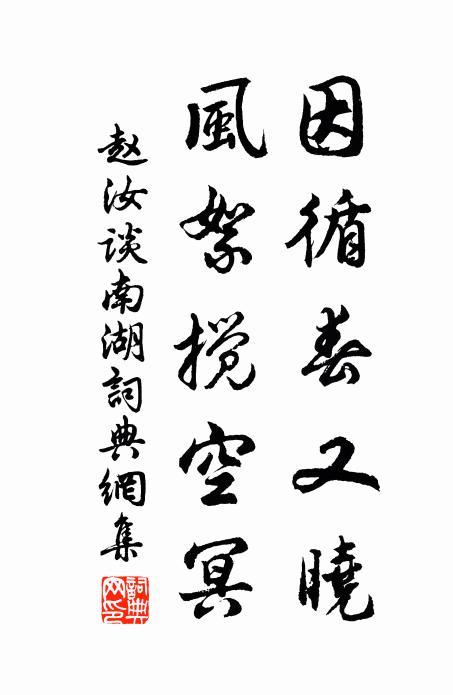 因循春又曉
風絮搅空冥
赵汝谈南湖詞典網集
詞典网印